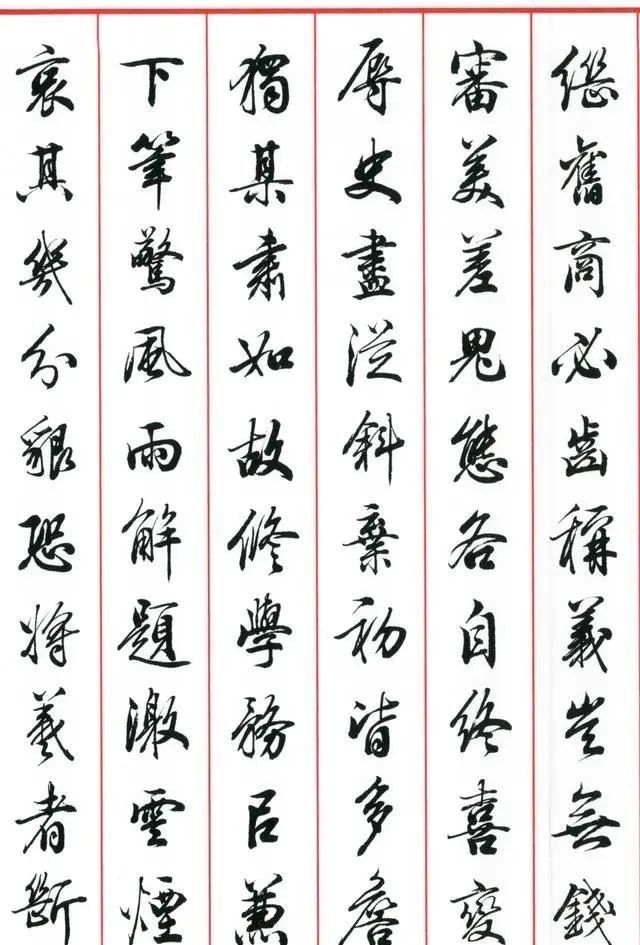 繼舊商必齒稱義豈無錢
審美差鬼態各自終喜變
辱史盡從斜棄初皆多詹
獨某肅如故修學務臣兼
下筆驚風雨解題激雲煙
哀其幾分貌恐將羲者斷